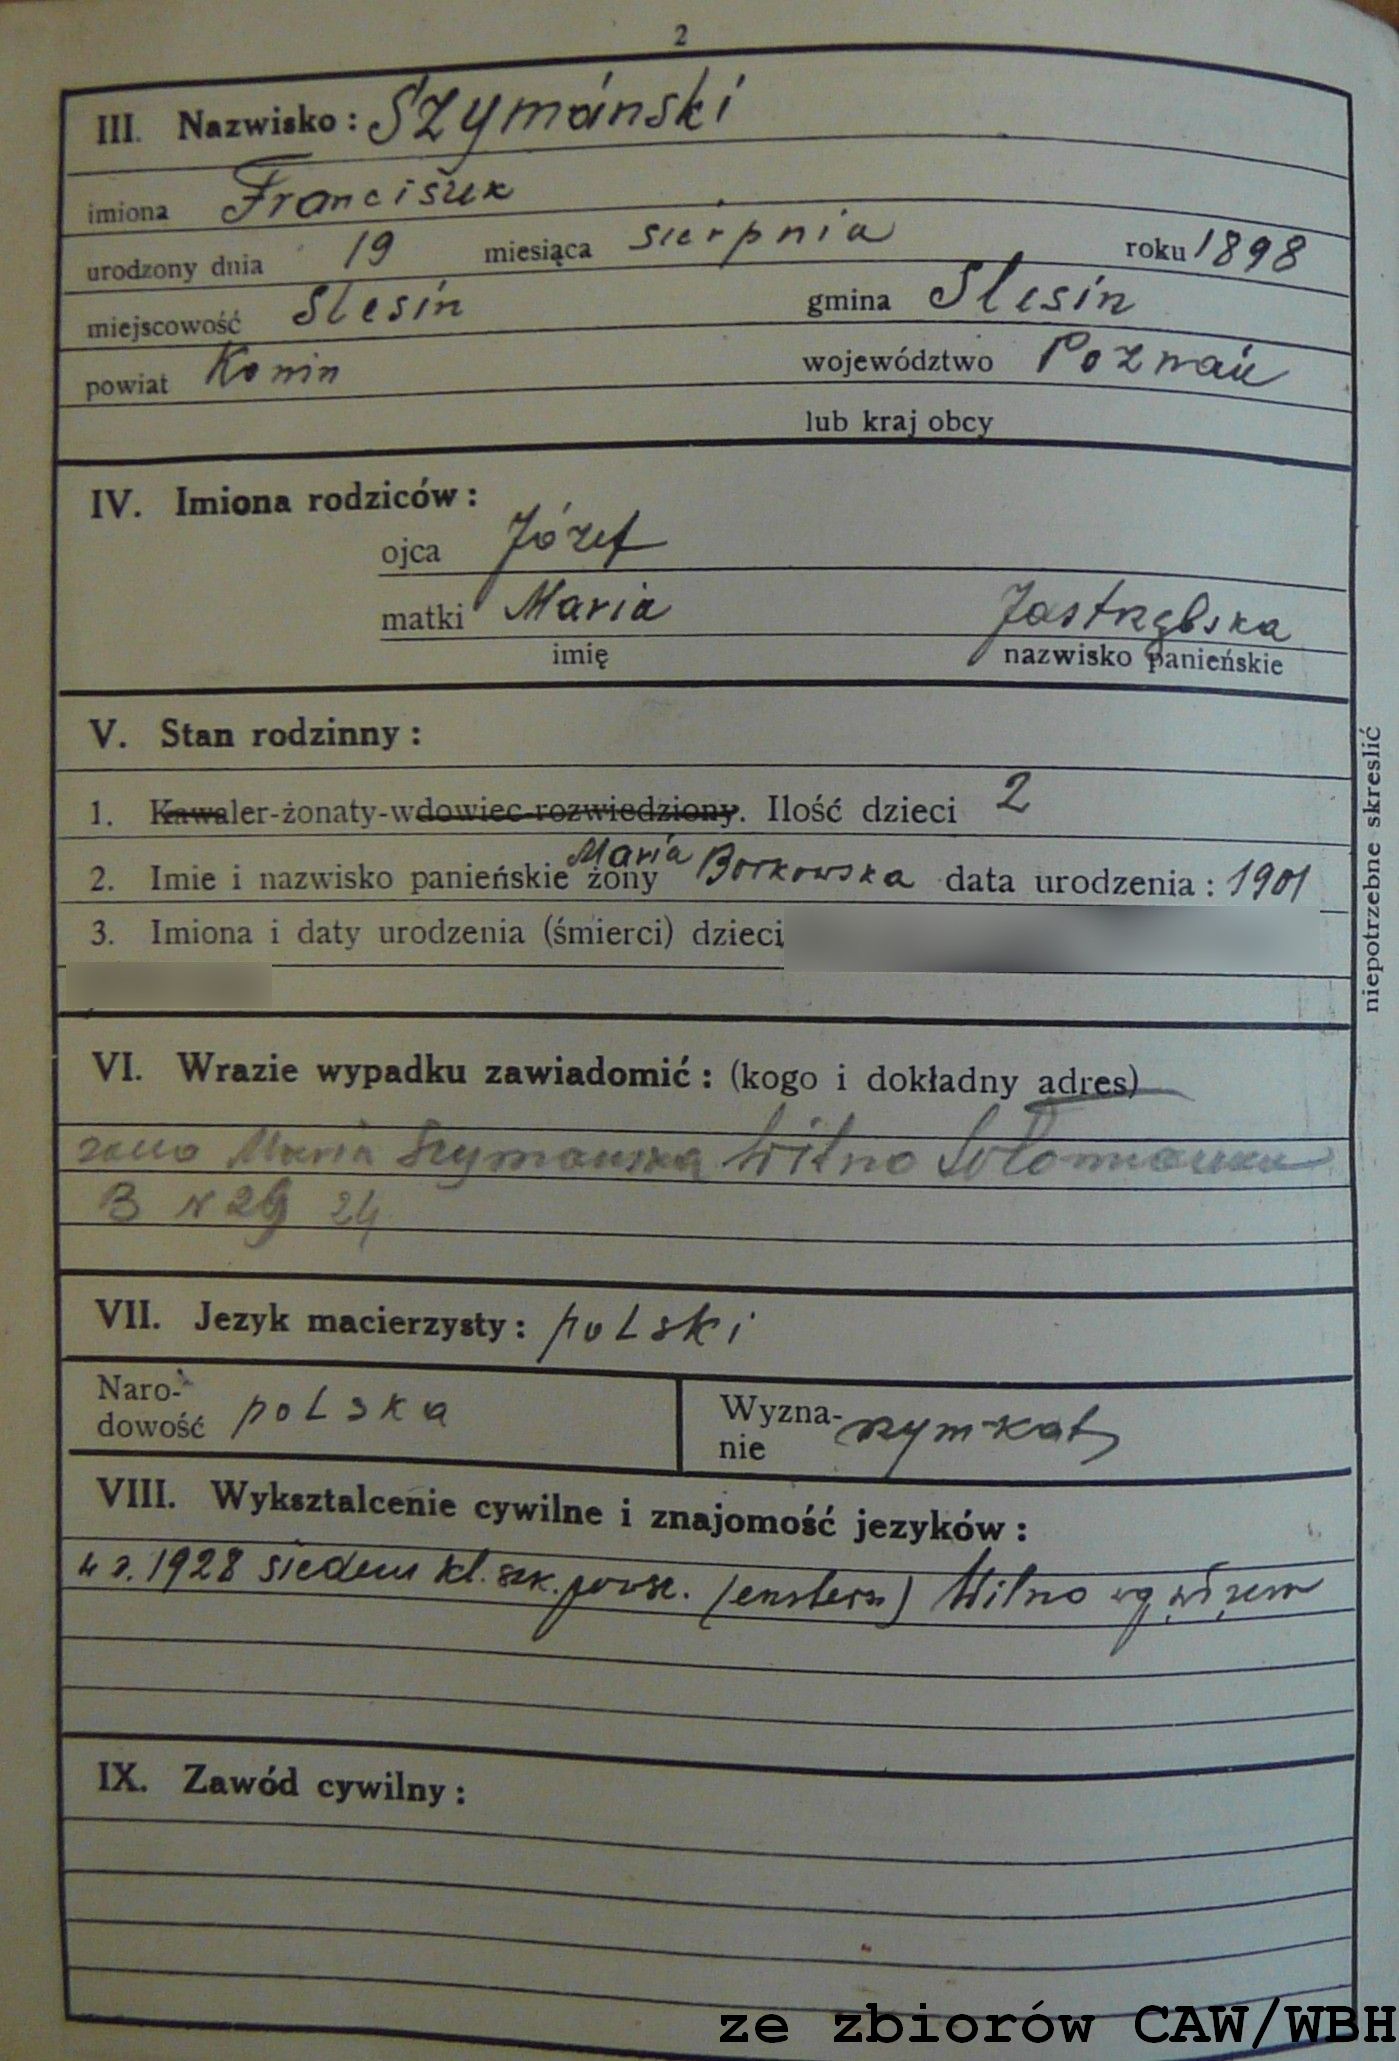 2
III. Nazwisko: Szymański
imiona Franciszek
urodzony dnia 19 miesiąca sierpnia roku 1898
miejscowość Slesin gmina Slesin
powiat Konin województwo Poznań
lub kraj obcy
IV. Imiona rodziców:
ojca Józef
matki Maria Jastrzębska
imię nazwisko panieńskie
V. Stan rodzinny:
1. Kawaler-żonaty-wdowiec-rozwiedziony. Ilość dzieci 2
2. Imie i nazwisko panieńskie żony Maria Borkowska data urodzenia: 1901
3. Imiona i daty urodzenia (śmierci) dzieci
niepotrzebne skreslić
VI. Wrazie wypadku zawiadomić: (kogo i dokładny adres)
żona Maria Szymańska Wilno
B N 29 24
VII. Jezyk macierzysty: polski
Naro-
dowość polska
Wyzna-
nie rzym-kat
VIII. Wyksztalcenie cywilne i znajomość jezyków:
w r. 1928 siedem kl. szk. powsz. Wilno
IX. Zawód cywilny:
ze zbiorów CAW/WBH